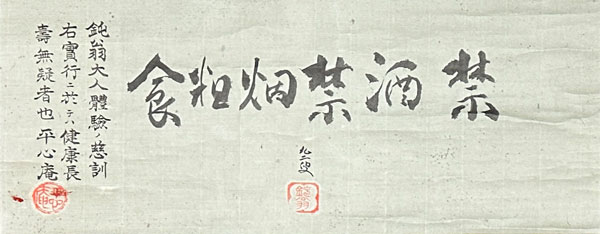 禁酒禁烟粗食
九二叟
鈍翁
鈍翁大人體驗ノ慈訓
右實行ニ於テハ健康長
壽無疑者也 平心庵